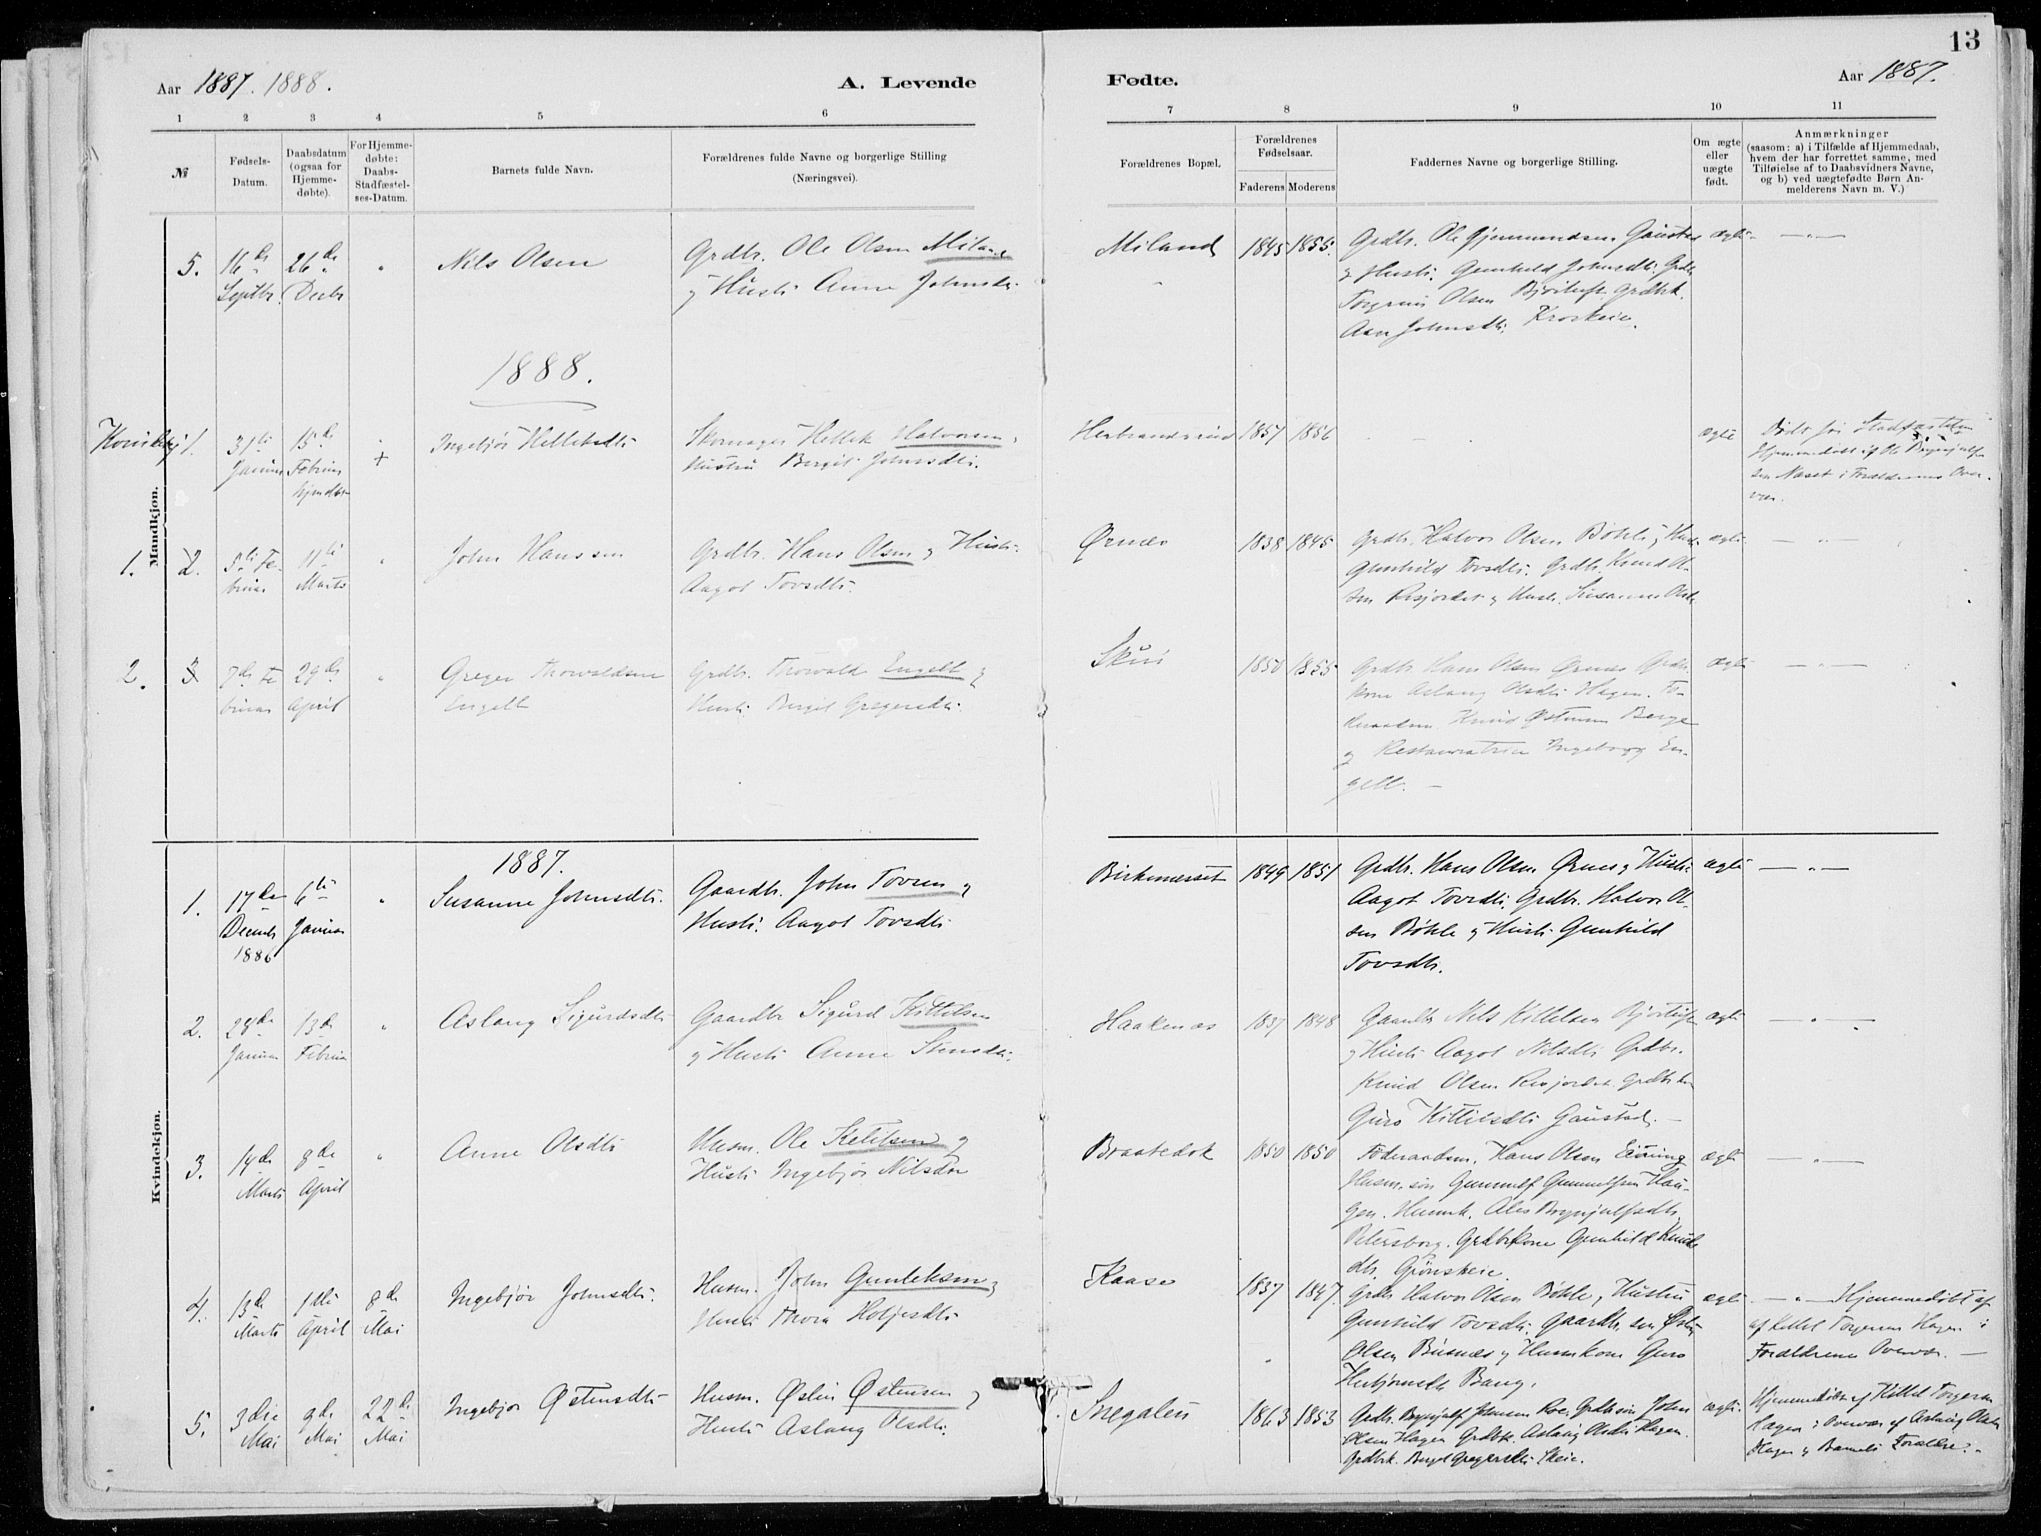 13
Aar 1887. 1888.
A. Levende
Fødte.
Aar 1887.
1 2 3 4 5 6 7 8 9 10 11
№
Fødsels-
Datum.
Daabsdatum
(ogsaa for
Hjemme-
døbte).
For Hjemme-
døbte:
Daabs-
Stadfæstel-
ses-Datum.
Barnets fulde Navn.
Forældrenes fulde Navne og borgerlige Stilling
(Næringsvei).
Forældrenes Bopæl.
Forældrenes
Fødselsaar.
Faderens Moderens
Faddernes Navne og borgerlige Stilling.
Om ægte
eller
uægte
født.
Anmærkninger
(saasom: a) i Tilfælde af Hjemmedaab,
hvem der har forrettet samme, med
Tilføielse af to Daabsvidners Navne,
og b) ved uægtefødte Børn An-
melderens Navn m. V.)
Mandkjøn.
5.
16de
Septbr.
26de
Decbr
"
Nils Olsen
Grdbr. Ole Olsen Miland
og Hustr. Anne Johnsdtr.
Miland
1845 1855.
Grdbr. Ole Gjermundsen Gausta
og Hustr. Gunhild Johnsdtr. Grdbr
Torgrim Olsen
Grdbrk.
Johnsdtr. Kroskeie.
ægte
— " —
1888.
1.
31te
Januar
15de
Februar
+
Ingebjør Helleksdtr
Skomager Hellek Halvorsen,
Hustru Bergit Johnsdtr.
Herbrandsrud
1857 1856
ægte
Død før Stadfæstelsen
Hjemmedøbt af Ole Brynjulfs
sen Næset i Forældrenes Over-
vær.
1. 2.
5te Fe-
bruar
11te
Marts
"
John Hanssen
Grdbr. Hans Olsen og Hustr.
Aagot Tovsdtr.
Ørnes
1838 1845
Grdbr. Halvor Olsen Bøhle og Hust.
Gunhild Tovsdtr. Grdbr. Knud Ol-
sen Risjordet og Hustr. Susanne Olsdtr
ægte
— " —
2. 3
7de Fe
bruar
29de
April
"
Greger Thorvaldsen
Engelt
Grdbr. Thorvald Engelt og
Hustr. Bergit Gregersdtr.
Skeie
1850 1855
Grdbr. Hans Olsen Ørnes Grdbr
kone Aslaug Olsdtr. Hagen. Fø-
deraadsm. Knud Østensen Berge
og Restauratrice Ingeborg En-
gelt. —
ægte
— " —
Kvindekjøn.
1887.
1.
17de
Decemb
1886
6te
Januar
"
Susanne Johnsdtr.
Gaardbr. John Tovsen og
Hustr. Aagot Tovsdtr
Birkenæsset
1849 1851
Grdbr. Hans Olsen Ørnes og Hustr.
Aagot Tovsdtr. Grdbr. Halvor Ol-
sen Bøhle og Hustr. Gunhild
Tovsdtr.
ægte
— " —
2.
28de
Januar
13de
Februar
"
Aslaug Sigurdsdtr
Gaardbr Sigurd Kittelsen
og Hustr Anne Stensdtr.
Haakenæs
1837 1848
Gaardbr Nils Kittelsen
og Hustr Aagot Nilsdtr Grdbr.
Knud Olsen Risjordet. Grdbr.
Guro Kittilsdtr Gaustad. —
ægte
— " —
3.
14de
Marts
8de
April
"
Anne Olsdtr
Husm. Ole Ketilsen og
Hustr Ingebjør Nilsdtr
Braatedok
1850 1850
Føderaadsm. Hans Olsen Einung
Husm.søn Gunnulf Gunnulfsen Hau-
gen. Husmk. Ales Brynjulfsdtr.
Petersborg. Grdbrkone Gunhild Knuds
dtr. Grønskeie.
ægte
— " —
4.
13de
Marts
11te
April
8de
Mai
Ingebjør Johnsdtr.
Husm. John Gunleksen og
Hustr Thora Holjesdtr
Kaase
1837 1847.
Grdbr Halvor Olsen Bøhle og Hustru
Gunhild Tovsdtr. Gaardbr. søn Østen
Olsen Busnes og Husmkone Guro
Herbjørnsdtr Bang.
ægte
— " — Hjemmedøbt af
af Kittel Torgersen Hagen i
Forældrenes Overvær. —
5.
3die
Mai
9de
Mai
22de
Mai
Ingebjør Østensdtr
Husm. Østen Østensen og
Hustr Aslaug Olsdtr.
1863 1853
Grdbr. Brynjulf Johnsen
Grdbrsøn John
Olsen Hagen Grdbk. Aslaug Olsdtr Hagen.
Grdbrk. Bergit Gregersdtr Skeie.
ægte.
Hjemmedøbt af Kittel Torgersen
Hagen i Overvær af Aslaug Olsdtr
Hagen og Barnets Forældre.